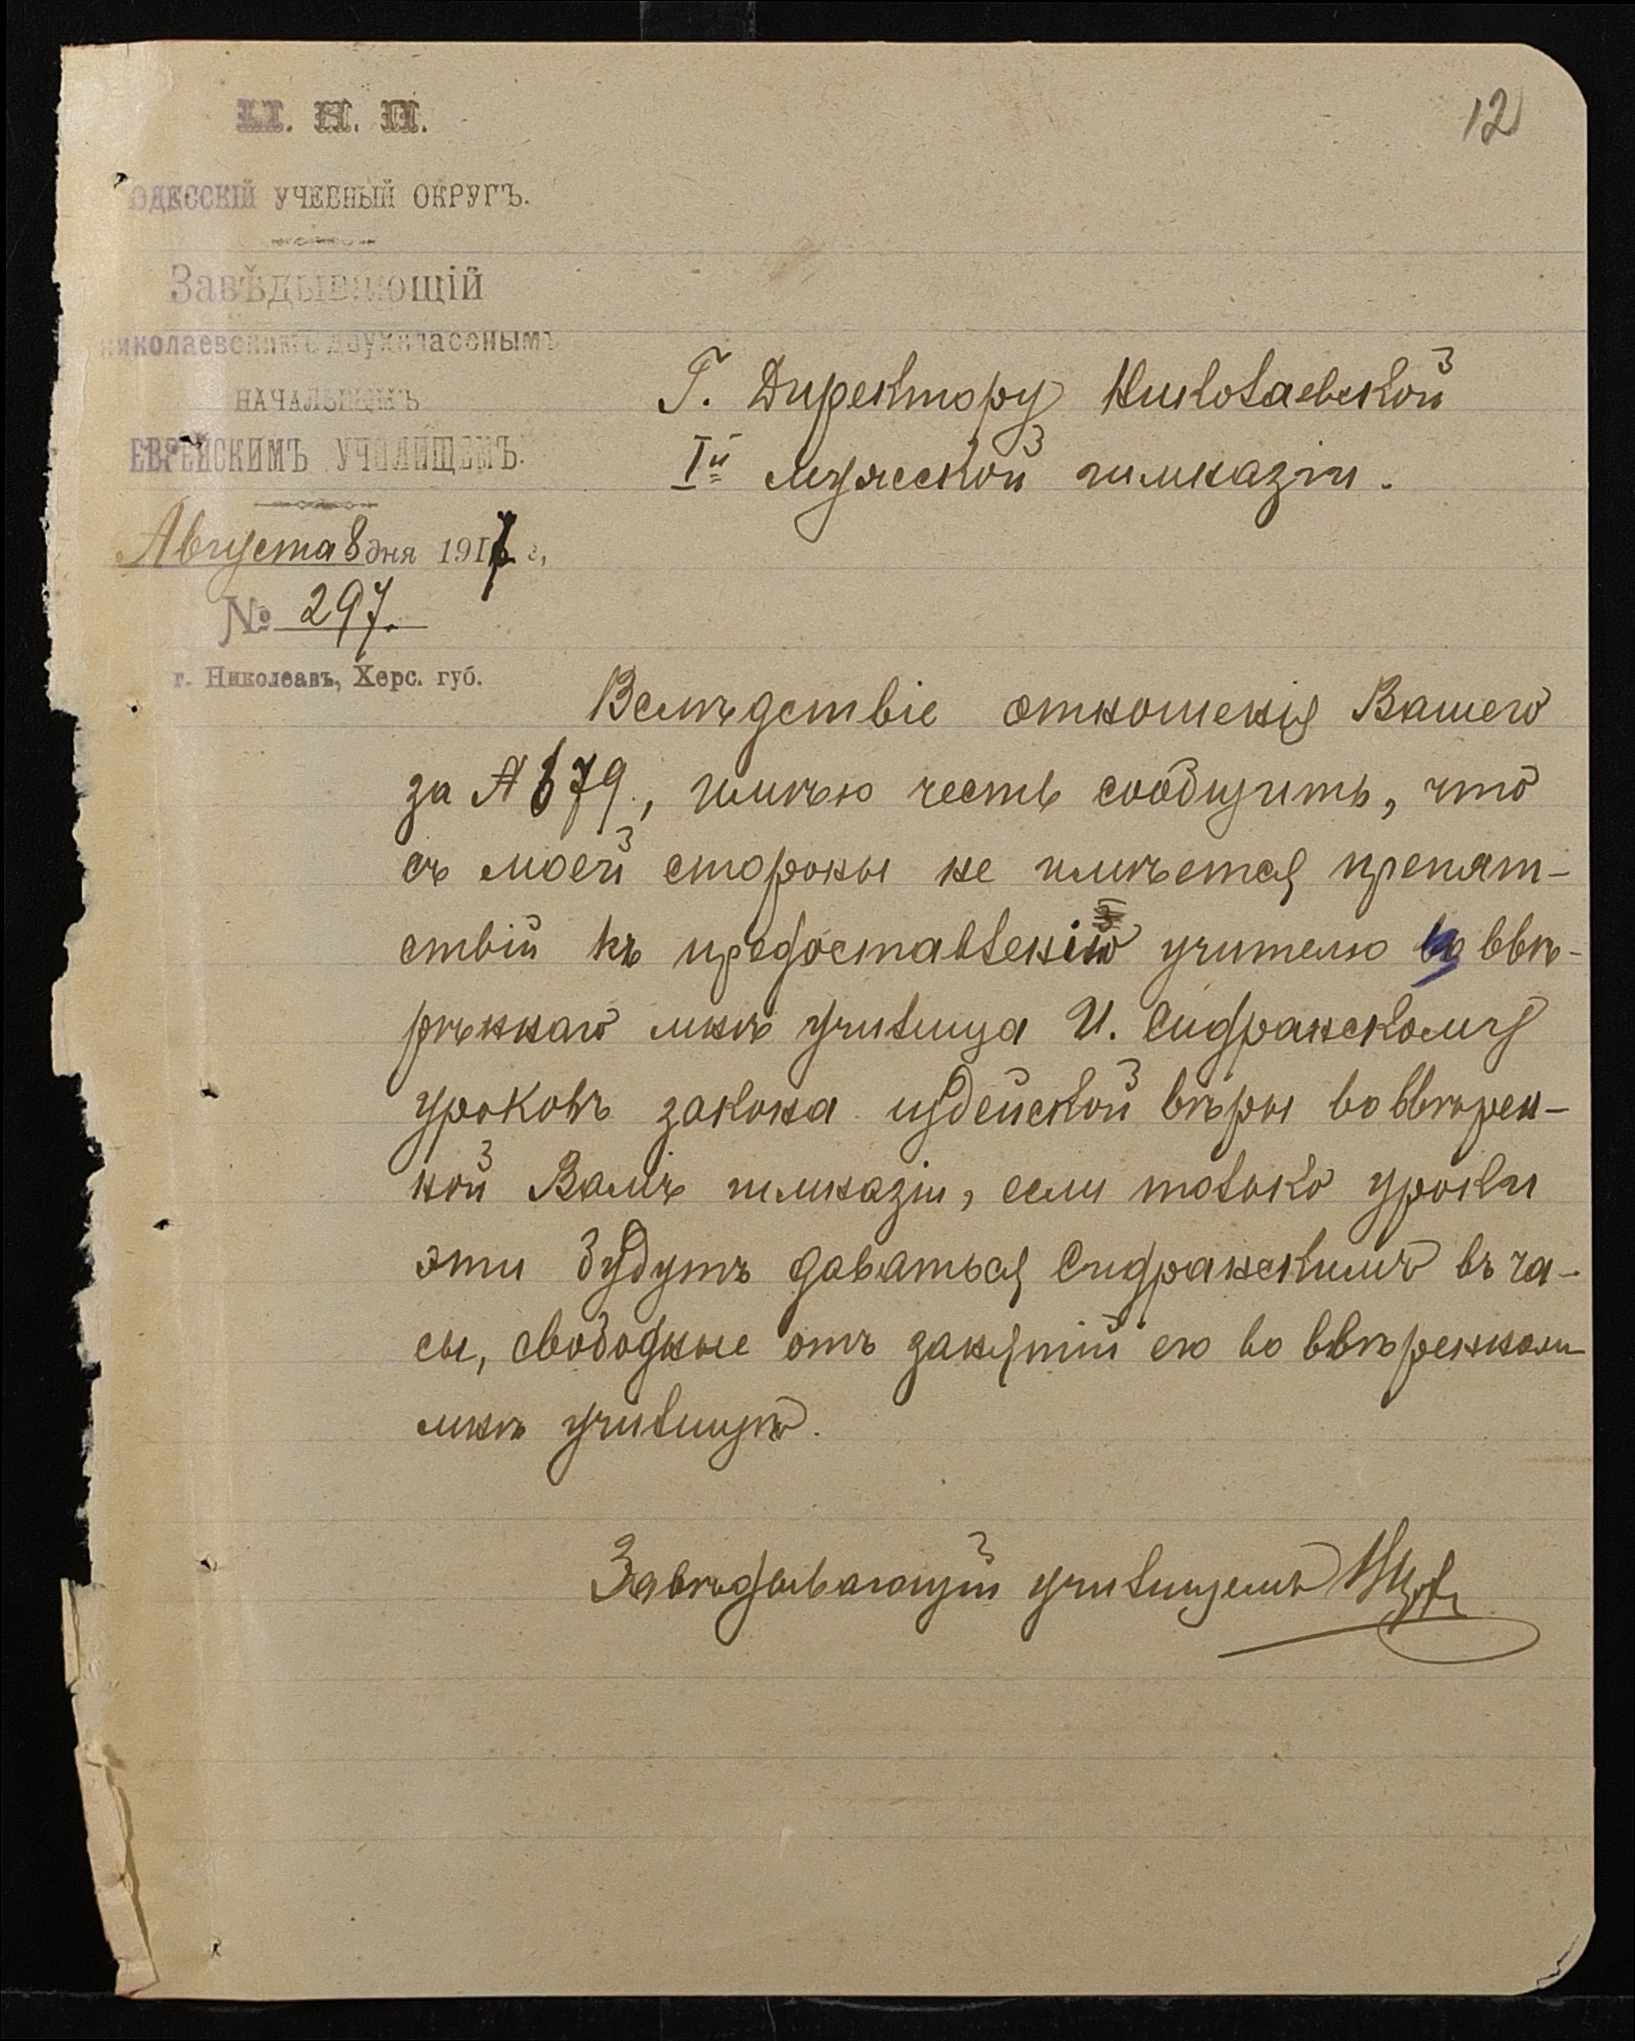 12
М. Н. П.
ОДЕССКІЙ УЧЕБНЫЙ ОКРУГЪ.
Завѣдывающій
николаевскимъ двухкласснымъ
НАЧАЛЬНЫМЪ
ЕВРЕЙСКИМЪ УЧИЛИЩЕМЪ.
Августа 8 дня 1917 г,
№ 297.
г. Николаевъ, Херс. губ.
Г. Директору Николаевской
Iй мужской гимназіи.
Вслѣдствіе отношенія Вашего
за № 679, имѣю честь сообщить, что
съ моей стороны не имѣется препят-
ствій къ предоставленію учителю ввѣ-
рѣннаго мнѣ училища И. Сидранскому
уроковъ закона іудейской вѣры во ввѣрен-
ной Вамъ гимназіи, если только уроки
эти будутъ даваться Сидранскимъ въ ча-
сы, свободные отъ занятій его во ввѣренномъ
мнѣ училищѣ.
Завѣдывающій училищемъ